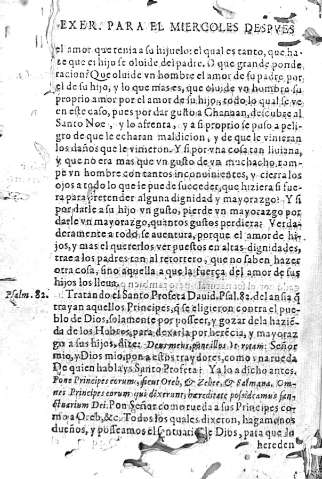 EXER. PARA EL MIERCOLES DESPVES
el amor que tenia a su hijuelo: el qual es tanto, que ha-
se que el hijo se oluide del padre. O que grande ponde
racion? Que oluide vn hombre el amor de su padre por
el de su hijo, y lo que mas es, que oluide vn hombre su
proprio amor por el amor de su hijo, todo lo qual se ve
en este caso, pues por dar gusto a Chanaan, descubre al
Santo Noe, y lo afrenta, y a si proprio se puso a peli-
gro de que le echaran maldicion, y de que le vinieran
los daños que le vinieron. Y si por vna cosa tan liuiana,
y que no era mas que vn gusto de vn muchacho, rom-
pe vn hombre con tantos inconuinientes, y cierra los
ojos a todo lo que le puede succeder, que hiziera si fue-
ra para pretender alguna dignidad y mayorazgo? Y si
por darle a su hijo vn gusto, pierde vn mayorazgo por
darle vn mayorazgo, quantos gustos perdiera? Verda-
deramente a todo se auentura, porque el amor de hi-
jos, y mas el quererlos ver puestos en altas dignidades,
trae a los padres tan al retortero, que no saben hazer
otra cosa, sino aquella a que la fuerça del amor de sus
hijos los lleua.
Psalm. 82. Tratando el Santo Profeta Dauid. Psal. 82. del ansia q̃
trayan aquellos Principes, q̃ se eligieron contra el pue-
blo de Dios, solamente por posseer, y gozar de la haziẽ-
da de los Hebreos, para dexarla por herẽcia, y mayoraz
go a sus hijos, dize: Deus meus, pone illos vt rotam: Señor
mio, y Dios mio, pon a estos traydores, como vna rueda
De quien habla ys Santo Profeta? Ya lo a dicho antes.
Pone Principes eorum, sicut Oreb, & Zebee, & Salmana. Om-
nes Principes eorum qui dixerunt, hæreditate possideamus san-
ctuarium Dei. Pon Señor como rueda a sus Principes co
mo a Oreb, &c. Todos los quales dixeron, hagamonos
dueños, y posseamos el sentuario de Dios, para que lo
hereden